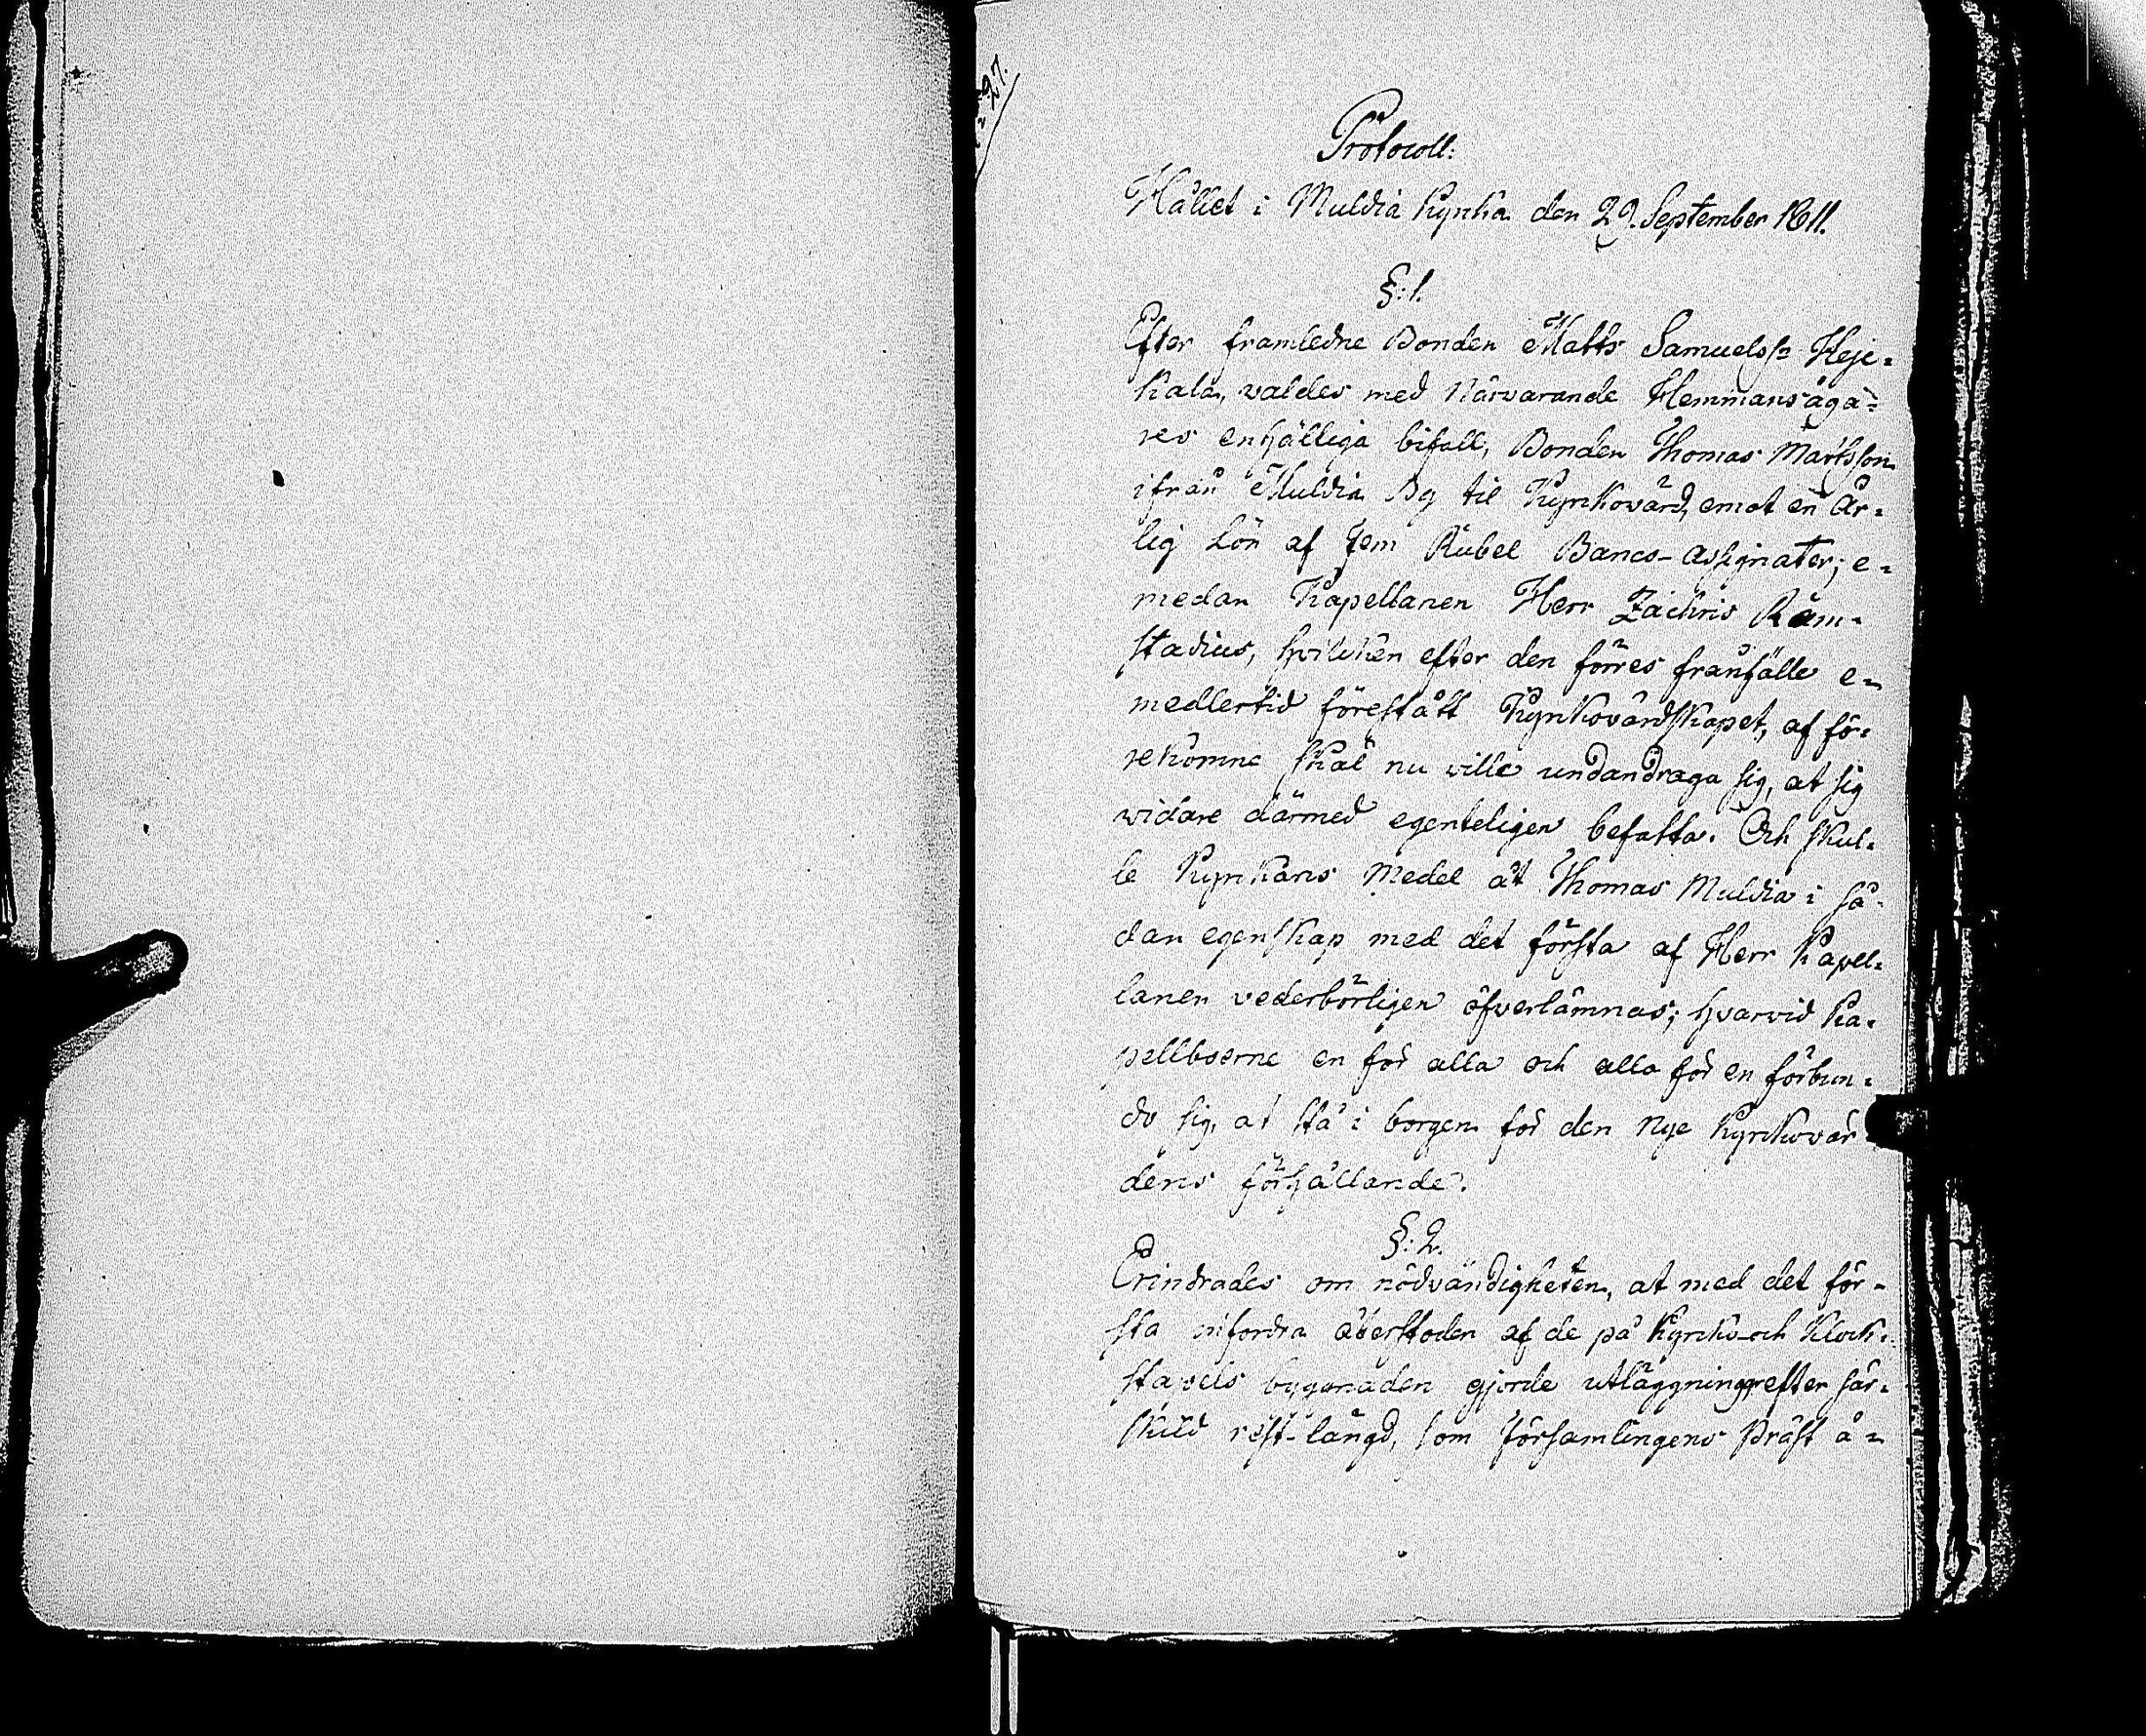 27.
Protocoll:
Hållet i Muldia Kyrka den 29. September 1811.
§: 1.
Efter framledne Bonden Matts Samuelss: Heji-
kala, valdes med närvarande Hemmansäga-
res enhälliga bifall, Bonden Thomas Mattsson
ifrån Muldia By til Kyrkovärd, emot en år-
lig Lön af Fem Rubel Banco-assignater; e-
medan Kapellanen Herr Zachris Ram-
stadius, hvilken efter den förres franfälle e-
medlertid förestått Kyrkovärdskapet, af fö-
rekomne skäl nu wille undandraga sig, at sig
widare därmed egenteligen befatta. Och skul-
le Kyrkans Medel åt Thomas Muldia i så-
dan egenskap med det första af Herr Kapel-
lanen vederbörligen öfverlämnas; hvarvid Ka-
pellboerne en för alla och alla för en förbun-
do sig, at stå i borgen för den nye Kyrkovär-
dens förhållande.
§: 2.
Erindrades om nödvändigheten, at med det för-
sta infordra återstoden af de på Kyrko-och Klock-
stapels byggnaden gjorde utläggningar efter sär-
skild rest-längd, som Församlingens Präst å-